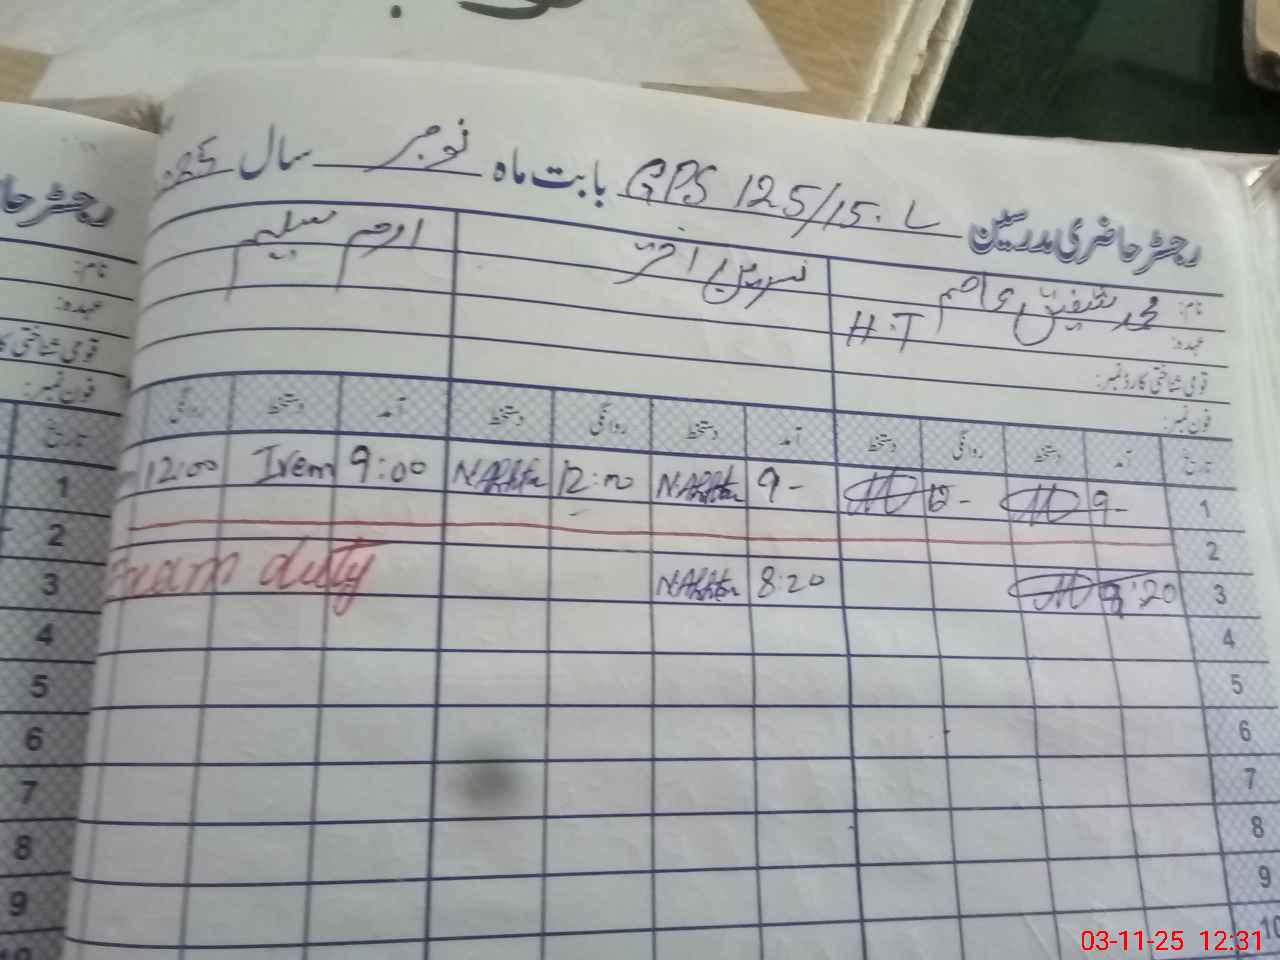 رجسٹر حاضری مدرسین GPS 125/15.L بابت ماہ نومبر سال 25
نام: محمد شفیق عاصم نسرین اختر ارم سلیم
عہدہ: H.T
قومی شناختی کارڈ نمبر:
فون نمبر:
تاریخ آمد دستخط روانگی دستخط آمد دستخط روانگی دستخط آمد دستخط روانگی
1 9- 12- 9- NAkhtar 12:00 NAkhtar 9:00 Irem 12:00
2
3 8:20 8:20 NAkhtar Exam duty
4
5
6
7
8
9
10
رجسٹر حا
نام:
عہدہ:
قومی شناختی کا
فون نمبر:
تاریخ
1
2
3
4
5
6
7
8
9
10
03-11-25 12:31